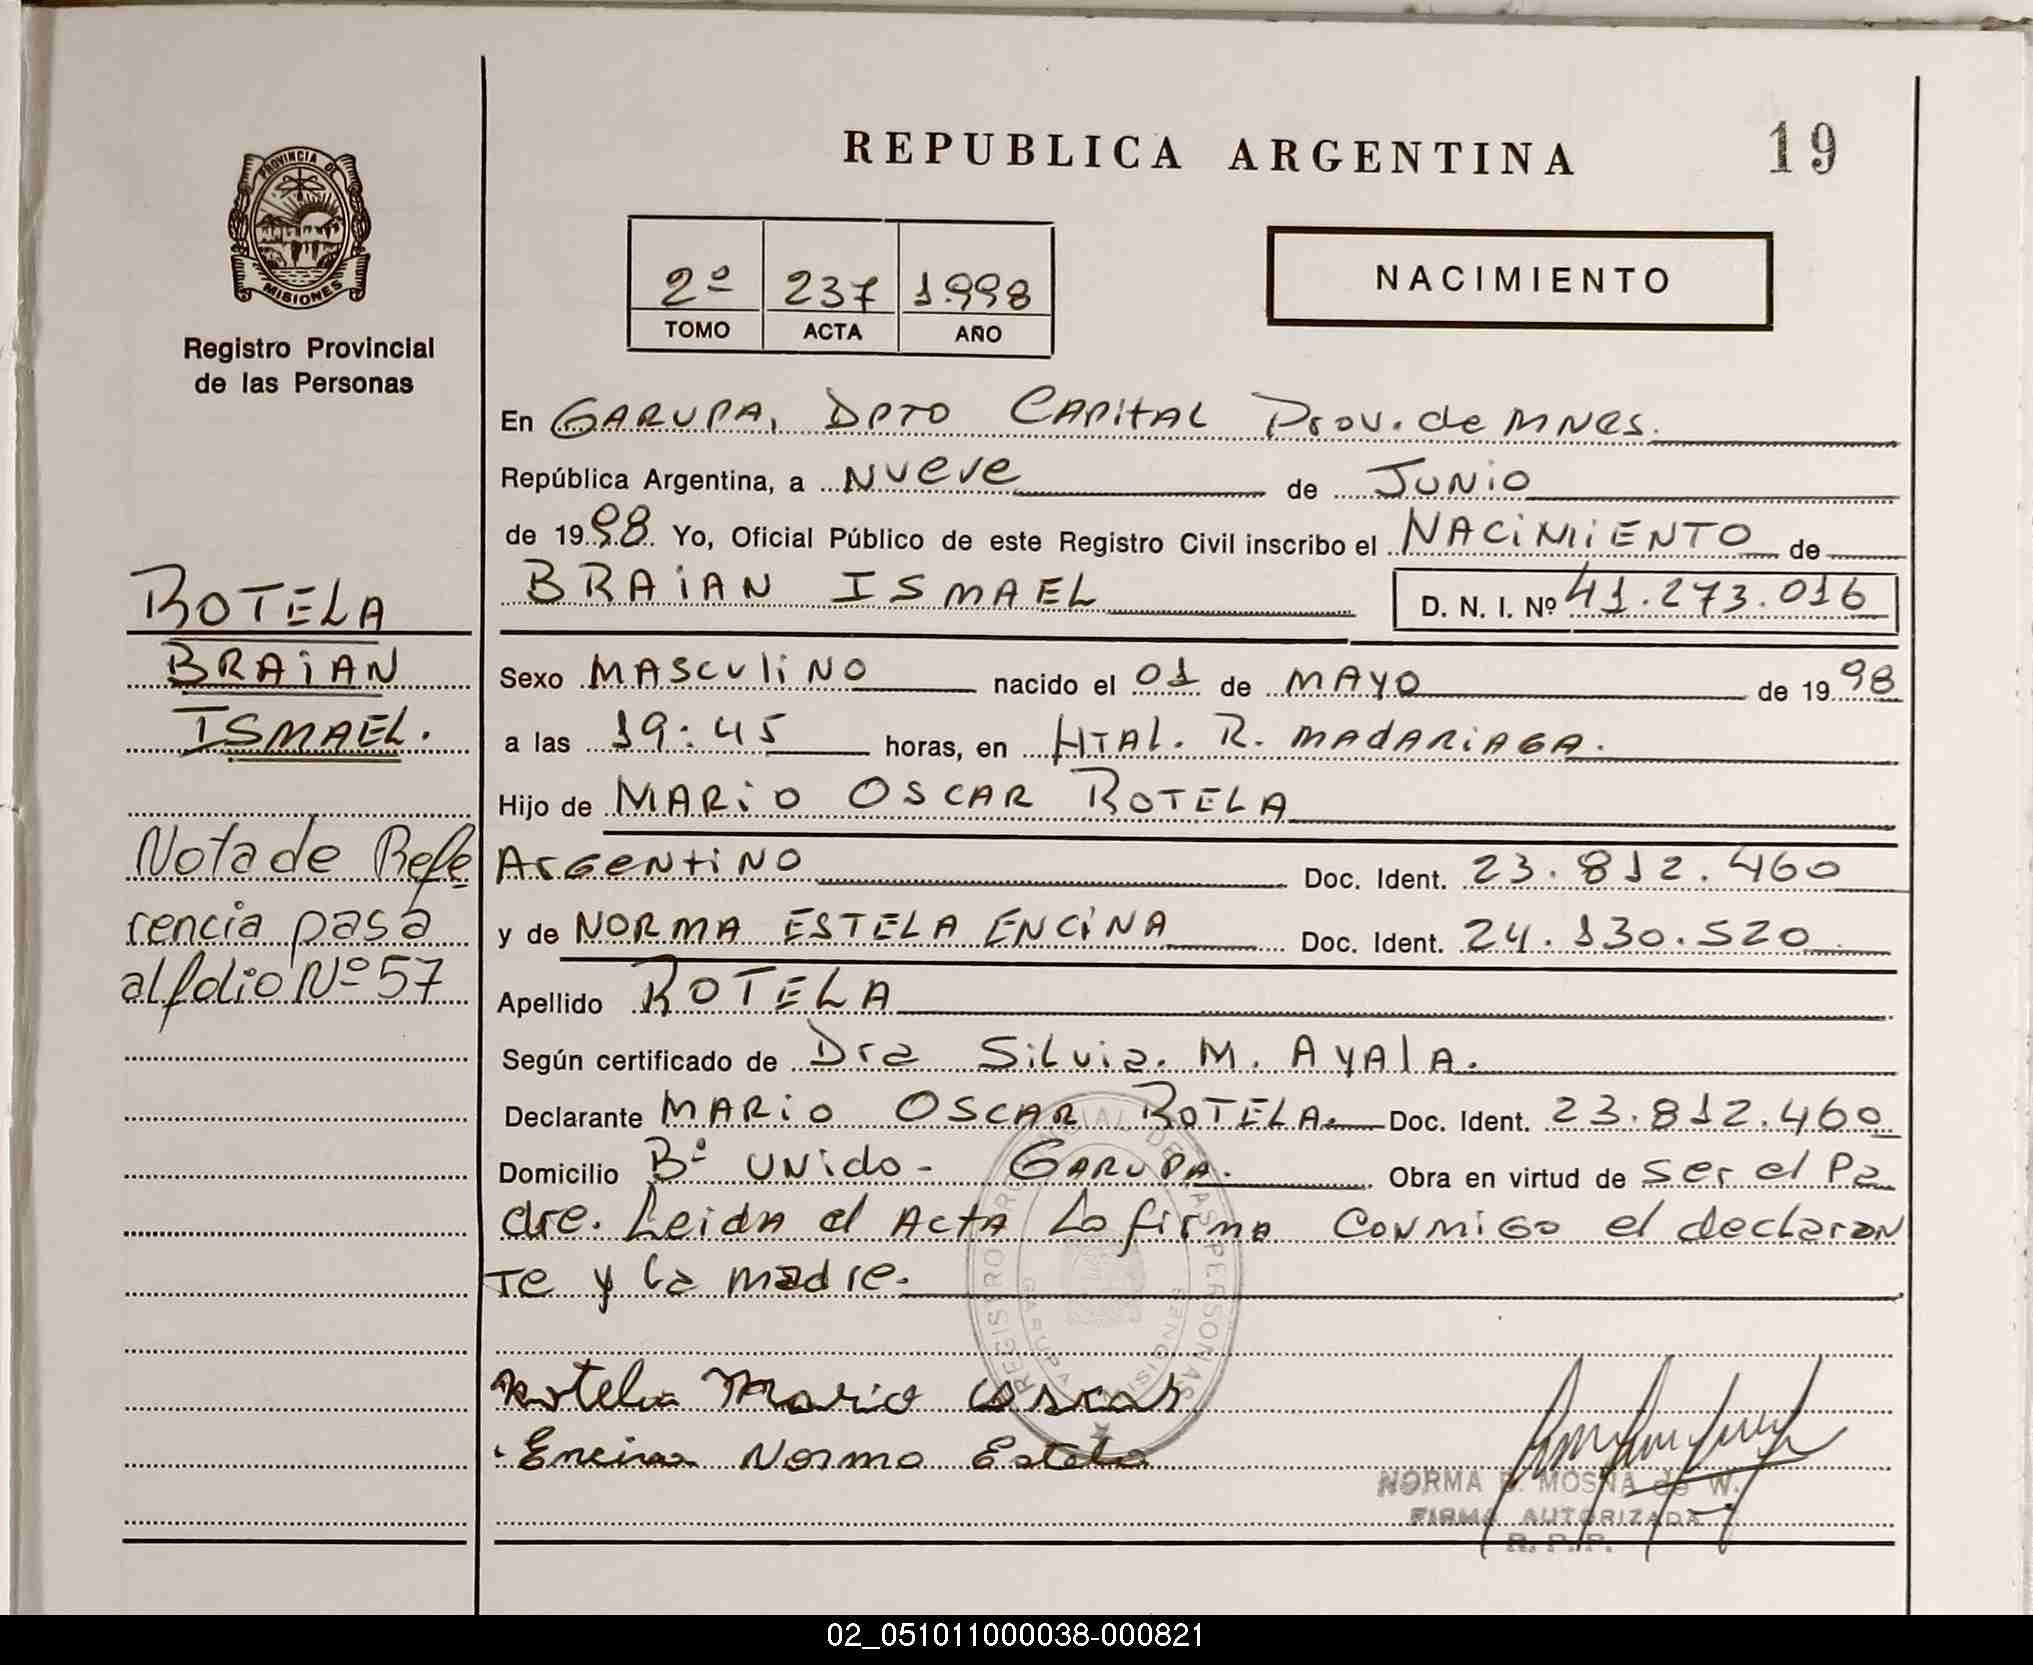 REPUBLICA ARGENTINA
19
PROVINCIA DE
MISIONES
Registro Provincial
de las Personas
2º 237 1.998
TOMO ACTA AÑO
NACIMIENTO
En GARUPA, DPTO CAPITAL Prov. de MNes.
República Argentina, a Nueve de JUNIO
de 1998 Yo, Oficial Público de este Registro Civil inscribo el NACIMIENTO de
BRAIAN ISMAEL D. N. I. Nº 41.273.016
Sexo MASCULINO nacido el 01 de MAYO de 1998
a las 19:45 horas, en HTAL. R. MADARIAGA.
Hijo de MARIO OSCAR ROTELA
ARGENTINO Doc. Ident. 23.812.460
y de NORMA ESTELA ENCINA Doc. Ident. 24.130.520
Apellido ROTELA
Según certificado de Dra Silvia. M. AYALA.
Declarante MARIO OSCAR ROTELA. Doc. Ident. 23.812.460
Domicilio Bº UNIDO - GARUPA. Obra en virtud de ser el Pa
dre. Leida el Acta La firma conmigo el declaran
te y la madre.
Rotela Mario Oscar
Encina Norma Estela
ROTELA
BRAIAN
ISMAEL.
Nota de Refe
rencia pasa
al folio Nº 57
REGISTRO PROVINCIAL DE LAS PERSONAS
GARUPA
MISIONES
NORMA MOSNA de W.
FIRMA AUTORIZADA
R. P. P.
02_051011000038-000821